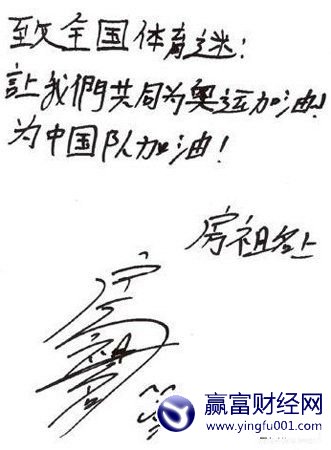 致全国体育迷:
让我們共同为奥运加油!
为中国队加油!
房祖名上
房祖名
赢富财经网
www.yingfu001.com